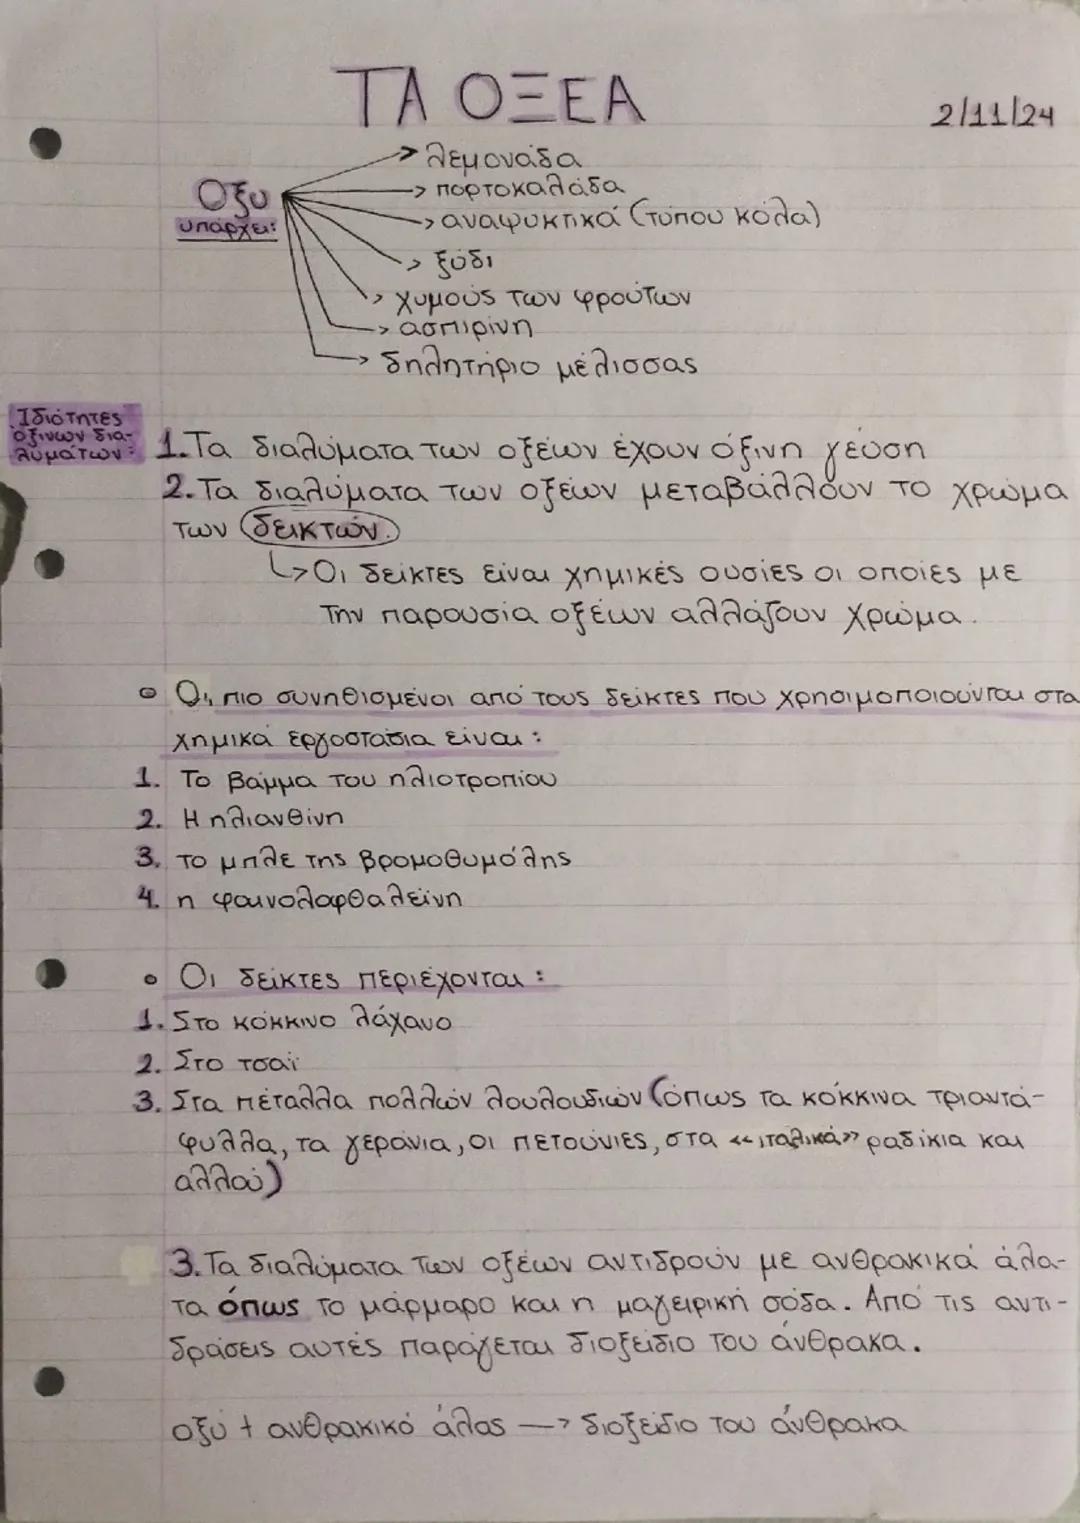 ΤΑ ΟΞΕΑ
2/11/24
Οξυ
υπάρχει:
λεμονάδα
πορτοκαλάδα
αναψυκτικά (τύπου κόλα)
ξύδι
χυμούς των φρούτων
ασπιρίνη
δηλητήριο μέλισσας
Ιδιότητες
όξινων δια-
λυμάτων:
1. Τα διαλύματα των οξέων έχουν όξινη γεύση
2. Τα διαλύματα των οξέων μεταβάλλουν το χρώμα
των δεικτών.
Οι δείκτες είναι χημικές ουσίες οι οποίες με
την παρουσία οξέων αλλάζουν χρώμα.
Οι πιο συνηθισμένοι από τους δείκτες που χρησιμοποιούνται στα
χημικά εργοστάσια είναι:
1. Το βάμμα του ηλιοτροπίου
2. Η ηλιανθίνη
3. το μπλε της βρομοθυμόλης
4. η φαινολοφθαλεΐνη
Οι δείκτες περιέχονται:
1. Στο κόκκινο λάχανο
2. Στο τσάι
3. Στα πέταλλα πολλών λουλουδιών (όπως τα κόκκινα τριαντά-
φυλλα, τα γεράνια, οι πετούνιες, στα «ιταλικά» ραδίκια και
αλλού)
3. Τα διαλύματα των οξέων αντιδρούν με ανθρακικά άλα-
τα όπως το μάρμαρο και η μαγειρική σόδα. Από τις αντι-
δράσεις αυτές παράγεται διοξείδιο του άνθρακα.
οξύ + ανθρακικό άλας → διοξείδιο του άνθρακα